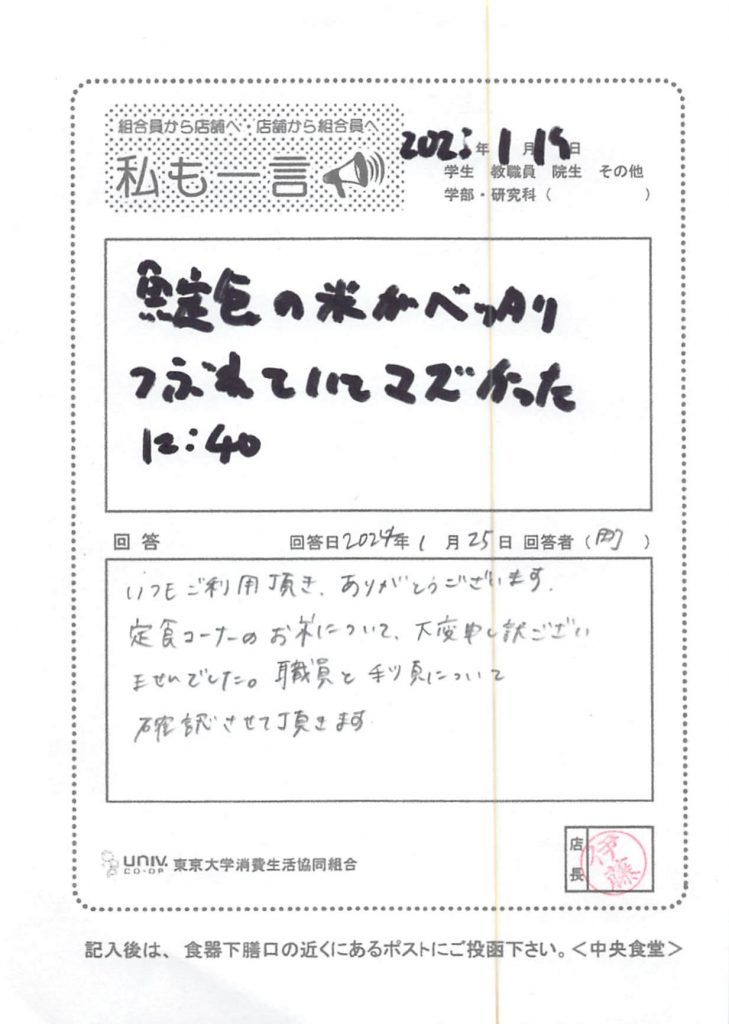 組合員から店舗へ・店舗から組合員へ
私も一言
2023年1月19日
学生 教職員 院生 その他
学部・研究科（ ）
魚定食の米がベッタリ
つぶれていてマズかった
12:40
回答 回答日2024年1月25日 回答者（ ）
いつもご利用頂き、ありがとうございます。
定食コーナーのお米について、大変申し訳ござい
ませんでした。職員と手順について
確認させて頂きます
UNIV. CO-OP 東京大学消費生活協同組合
店長 伊藤
記入後は、食器下膳口の近くにあるポストにご投函下さい。＜中央食堂＞